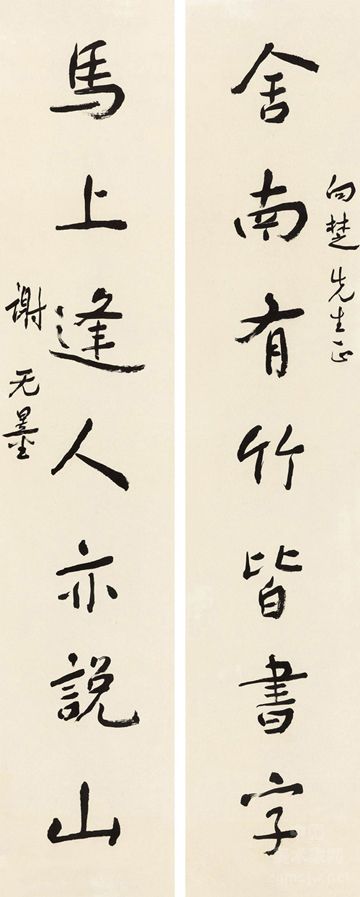 向楚先生正
舍南有竹皆書字
馬上逢人亦説山
谢无量